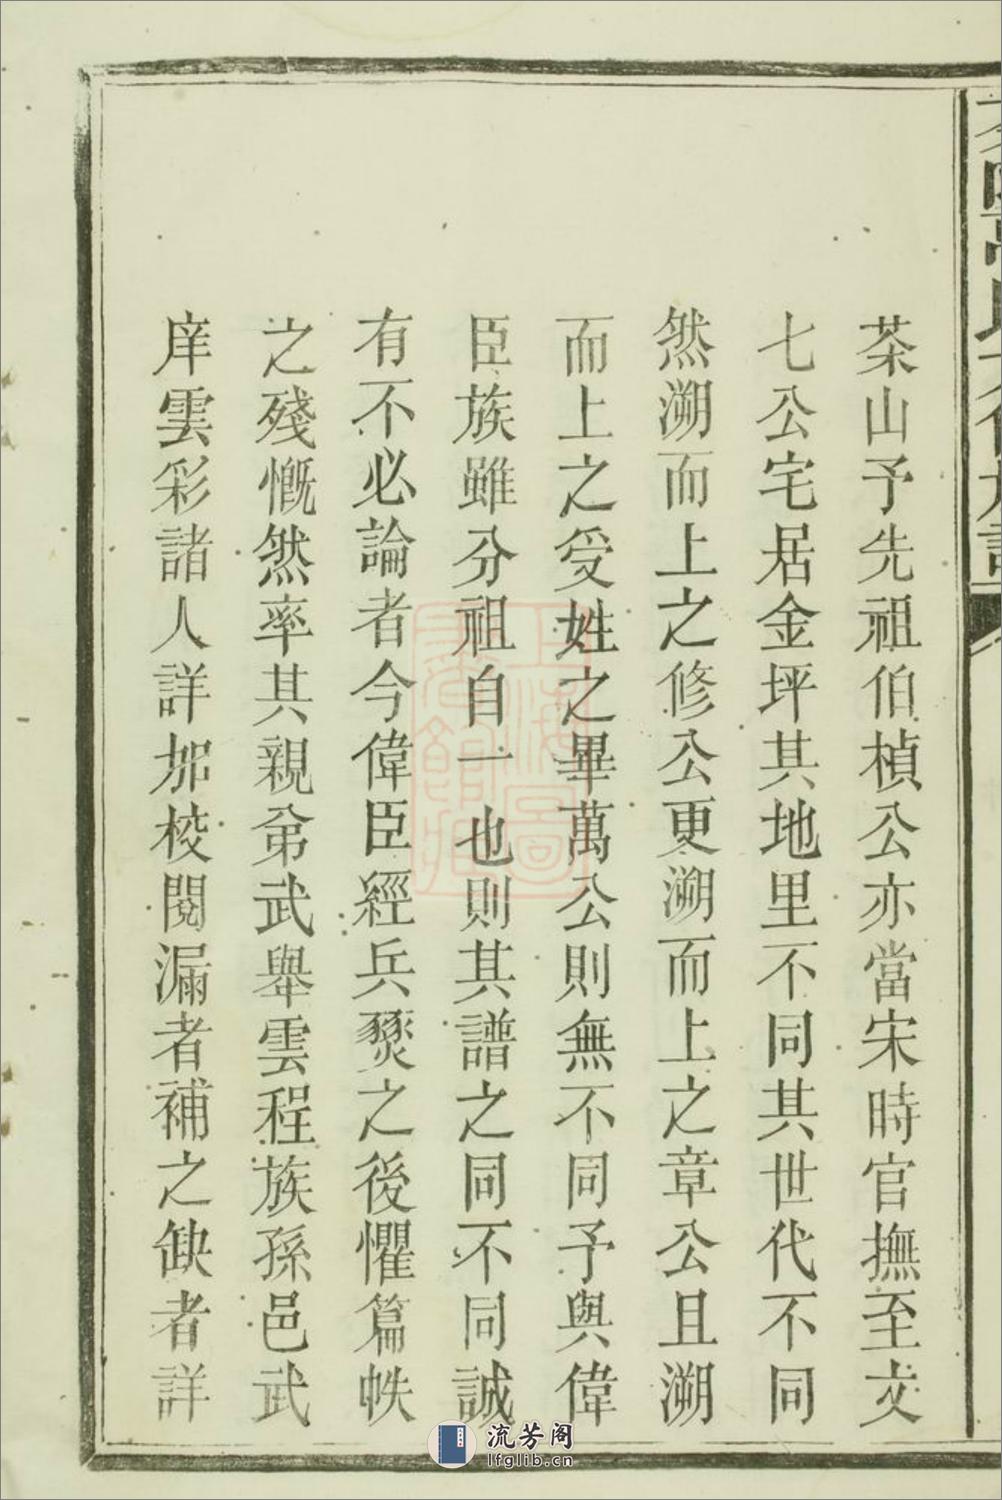 茶山予先祖伯楨公亦當宋時官撫至文
七公宅居金坪其地里不同其世代不同
然溯而上之修公更溯而上之章公且溯
而上之受姓之畢萬公則無不同予與偉
臣族雖分祖自一也則其譜之同不同誠
有不必論者今偉臣經兵燹之後懼篇帙
之殘慨然率其親弟武舉雲程族孫邑武
庠雲彩諸人詳加校閱漏者補之缺者詳
流芳阁
lfglib.cn